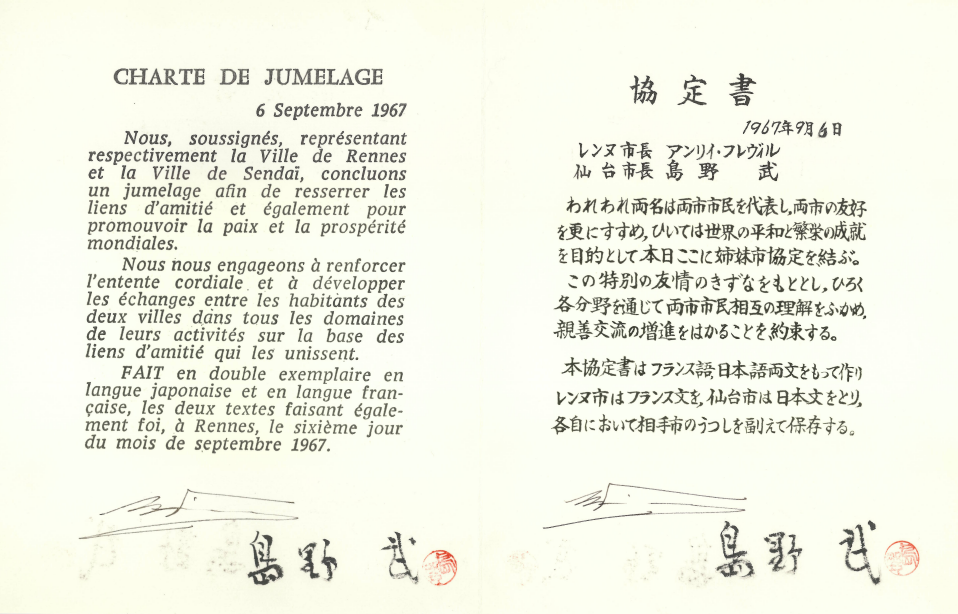 CHARTE DE JUMELAGE
6 Septembre 1967
Nous, soussignés, représentant
respectivement la Ville de Rennes
et la Ville de Sendaï, concluons
un jumelage afin de resserrer les
liens d'amitié et également pour
promouvoir la paix et la prospérité
mondiales.
Nous nous engageons à renforcer
l'entente cordiale et à développer
les échanges entre les habitants des
deux villes dans tous les domaines
de leurs activités sur la base des
liens d'amitié qui les unissent.
FAIT en double exemplaire en
langue japonaise et en langue fran-
çaise, les deux textes faisant égale-
ment foi, à Rennes, le sixième jour
du mois de septembre 1967.
島野 武
協定書
1967年9月6日
レンヌ市長 アンリイ・フレヴィル
仙台市長 島野 武
われわれ両名は両市市民を代表し,両市の友好
を更にすすめ,ひいては世界の平和と繁栄の成就
を目的として本日ここに姉妹市協定を結ぶ。
この特別の友情のきずなをもととし,ひろく
各分野を通じて両市市民相互の理解をふかめ,
親善交流の増進をはかることを約束する。
本協定書はフランス語,日本語両文をもって作り
レンヌ市はフランス文を,仙台市は日本文をとり,
各自において相手市のうつしを副えて保存する。
島野 武